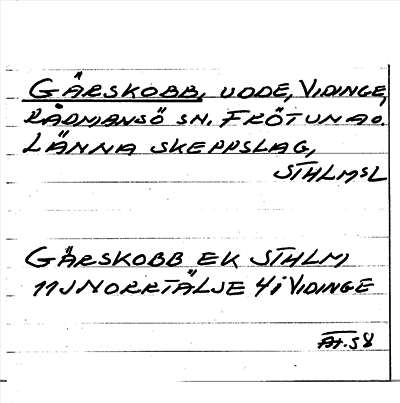 GÄRSKOBB, UDDE, VIDINGE,
RÅDMANSÖ SN, FRÖTUNA O.
LÄNNA SKEPPSLAG,
STHLMSL
GÄRSKOBB EK STHLM
11J NORRTÄLJE 4i VIDINGE